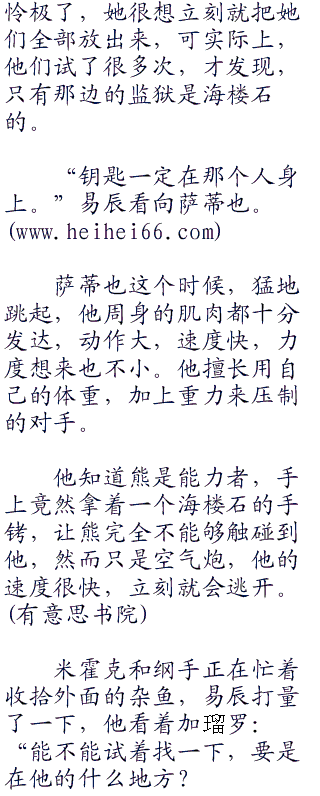 怜极了，她很想立刻就把她
们全部放出来，可实际上，
他们试了很多次，才发现，
只有那边的监狱是海楼石
的。
“钥匙一定在那个人身
上。”易辰看向萨蒂也。
(www.heihei66.com)
萨蒂也这个时候，猛地
跳起，他周身的肌肉都十分
发达，动作大，速度快，力
度想来也不小。他擅长用自
己的体重，加上重力来压制
的对手。
他知道熊是能力者，手
上竟然拿着一个海楼石的手
铐，让熊完全不能够触碰到
他，然而只是空气炮，他的
速度很快，立刻就会逃开。
(有意思书院)
米霍克和纲手正在忙着
收拾外面的杂鱼，易辰打量
了一下，他看着加瑠罗：
“能不能试着找一下，要是
在他的什么地方？